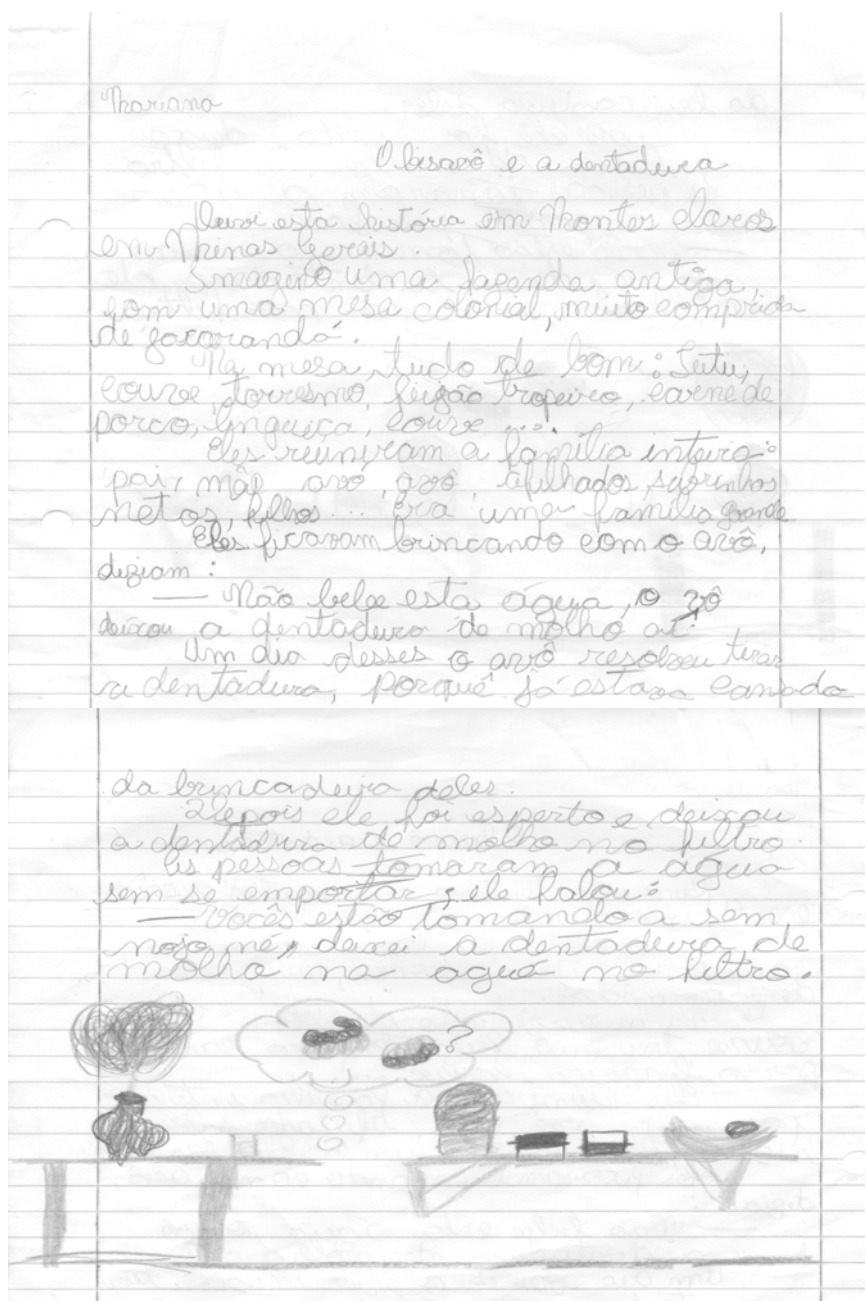 Mariana
O bisavô e a dentadura
Ouvi esta história em Montes claros
em Minas Gerais.
Imagino uma fazenda antiga,
com uma mesa colonial, muito comprida
de jacarandá.
Na mesa tudo de bom: Leitu,
couve, torresmo, feijão tropeiro, carne de
porco, linguiça, couve ....
Eles reuniram a família inteira:
pai, mãe avó, avô, afilhados, sobrinhos
netos, filhos... Era uma família grande
Eles ficavam brincando com o avô,
diziam:
— Não bebe esta água, o vô
deixou a dentadura de molho aí!
Um dia desses o avô resolveu tirar
a dentadura, porquê já estava cansado
da brincadeira deles.
Depois ele foi esperto e deixou
a dentadura de molho no filtro.
As pessoas tomaram a água
sem se emportar, ele falou:
— Vocês estão tomando a sem
nojo né, deixei a dentadura de
molho na agua no filtro.
?